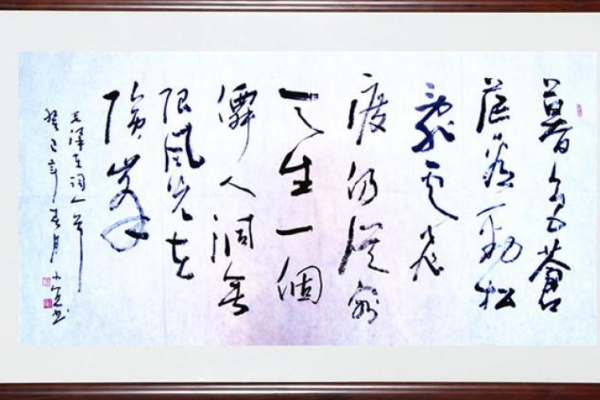 暮色蒼
茫看勁松
亂雲飛
渡仍從容
天生一個
僊人洞無
限風光在
險峯
毛澤東詞一首
癸巳年春月